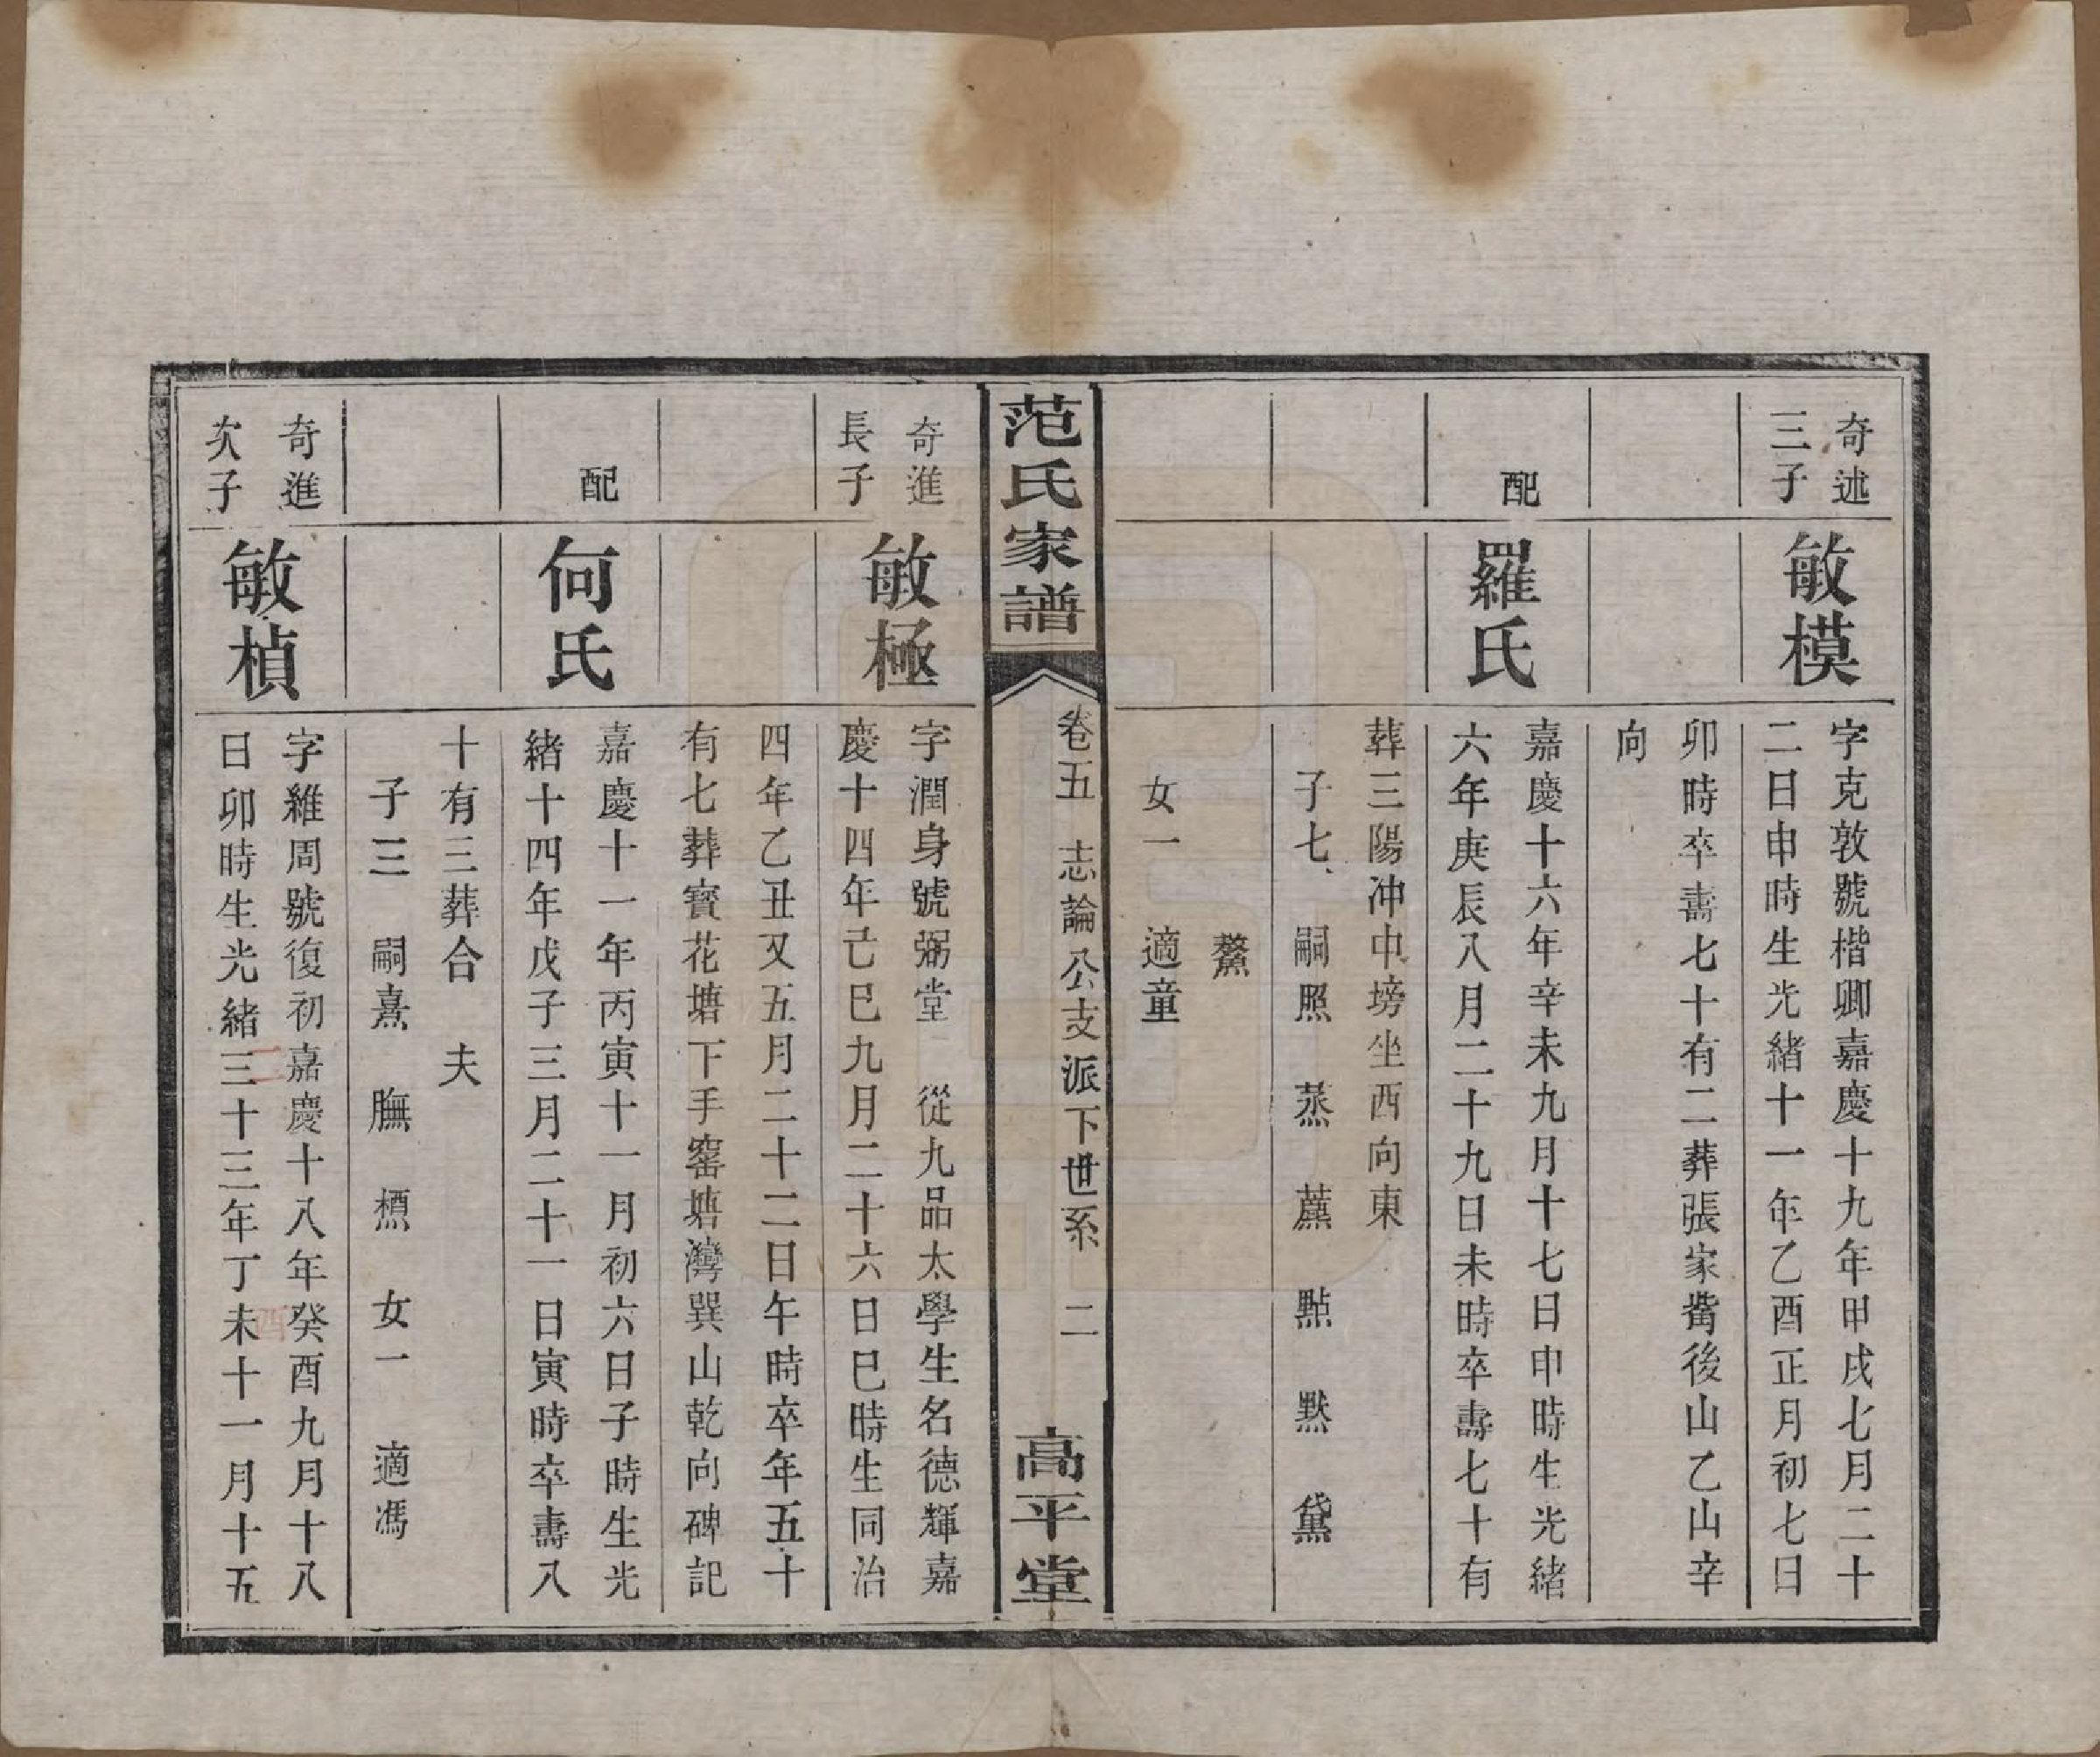 奇述
三子
敏模
字克敦號楷卿嘉慶十九年甲戌七月二十
二日申時生光緒十一年乙酉正月初七日
卯時卒壽七十有二葬張家觜後山乙山辛
向
配
羅氏
嘉慶十六年辛未九月十七日申時生光緒
六年庚辰八月二十九日未時卒壽七十有
葬三陽冲中塝坐西向東
子七 嗣照 蒸 藨 㸃 默 黛
鰲
女一 適童
范氏家譜
卷五 志論公支派下世系 二
高平堂
奇進
長子
敏極
字潤身號弼堂 從九品太學生名德輝嘉
慶十四年己巳九月二十六日巳時生同治
四年乙丑又五月二十二日午時卒年五十
有七葬寶花塘下手窰塘灣巽山乾向碑記
配
何氏
嘉慶十一年丙寅十一月初六日子時生光
緒十四年戊子三月二十一日寅時卒壽八
十有三葬合 夫
子三 嗣熹 膴 㯹 女一 適馮
奇進
次子
敏楨
字維周號復初嘉慶十八年癸酉九月十八
日卯時生光緒三十三年丁未十一月十五
二
酉